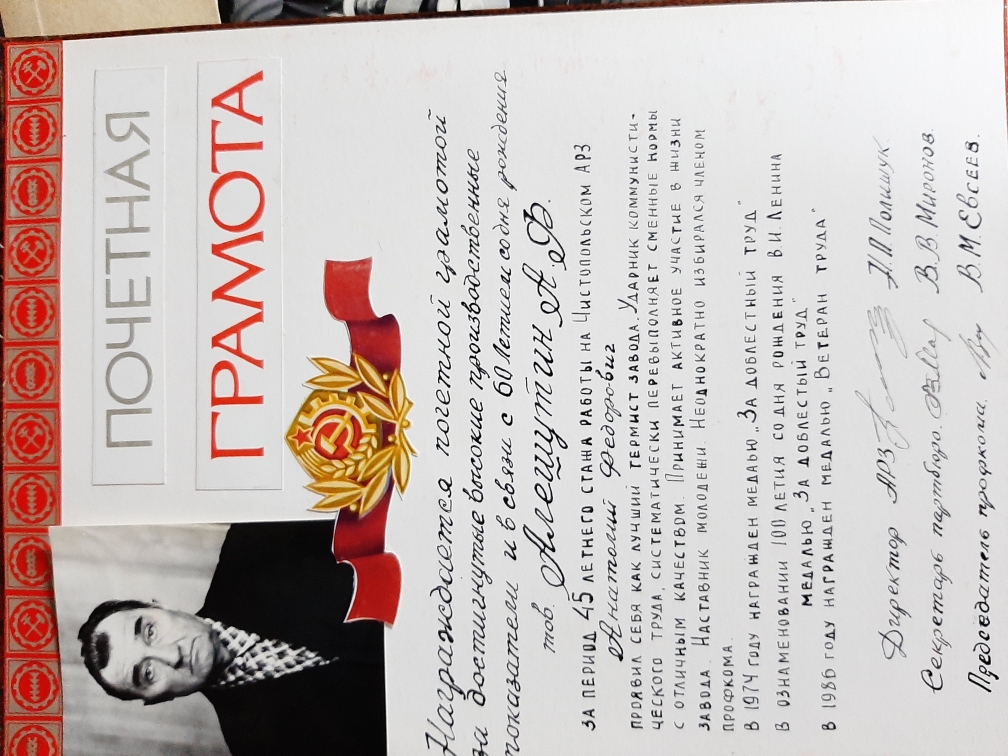 ПОЧЕТНАЯ
ГРАМОТА
Награждается почетной грамотой
за достигнутые высокие производственные
показатели и в связи с 60 Летием со дня рождения
тов. Алешутин А.Ф.
ЗА ПЕРИОД 45 ЛЕТНЕГО СТАЖА РАБОТЫ НА ЧИСТОПОЛЬСКОМ АРЗ
Анатолий Федорович
ПРОЯВИЛ СЕБЯ КАК ЛУЧШИЙ ТЕРМИСТ ЗАВОДА. УДАРНИК КОММУНИСТИ-
ЧЕСКОГО ТРУДА, СИСТЕМАТИЧЕСКИ ПЕРЕВЫПОЛНЯЕТ СМЕННЫЕ НОРМЫ
С ОТЛИЧНЫМ КАЧЕСТВОМ. ПРИНИМАЕТ АКТИВНОЕ УЧАСТИЕ В ЖИЗНИ
ЗАВОДА. НАСТАВНИК МОЛОДЕЖИ. НЕОДНОКРАТНО ИЗБИРАЛСЯ ЧЛЕНОМ
ПРОФКОМА.
В 1974 ГОДУ НАГРАЖДЕН МЕДАЛЬЮ „ЗА ДОБЛЕСТНЫЙ ТРУД"
В ОЗНАМЕНОВАНИИ 100 ЛЕТИЯ СО ДНЯ РОЖДЕНИЯ В.И. ЛЕНИНА
МЕДАЛЬЮ „ЗА ДОБЛЕСТЫЙ ТРУД"
В 1986 ГОДУ НАГРАЖДЕН МЕДАЛЬЮ „ВЕТЕРАН ТРУДА"
Директор АРЗ Н.П. Полищук
Секретарь партбюро. В.В. Миронов.
Председатель профкома. В.М. Евсеев.